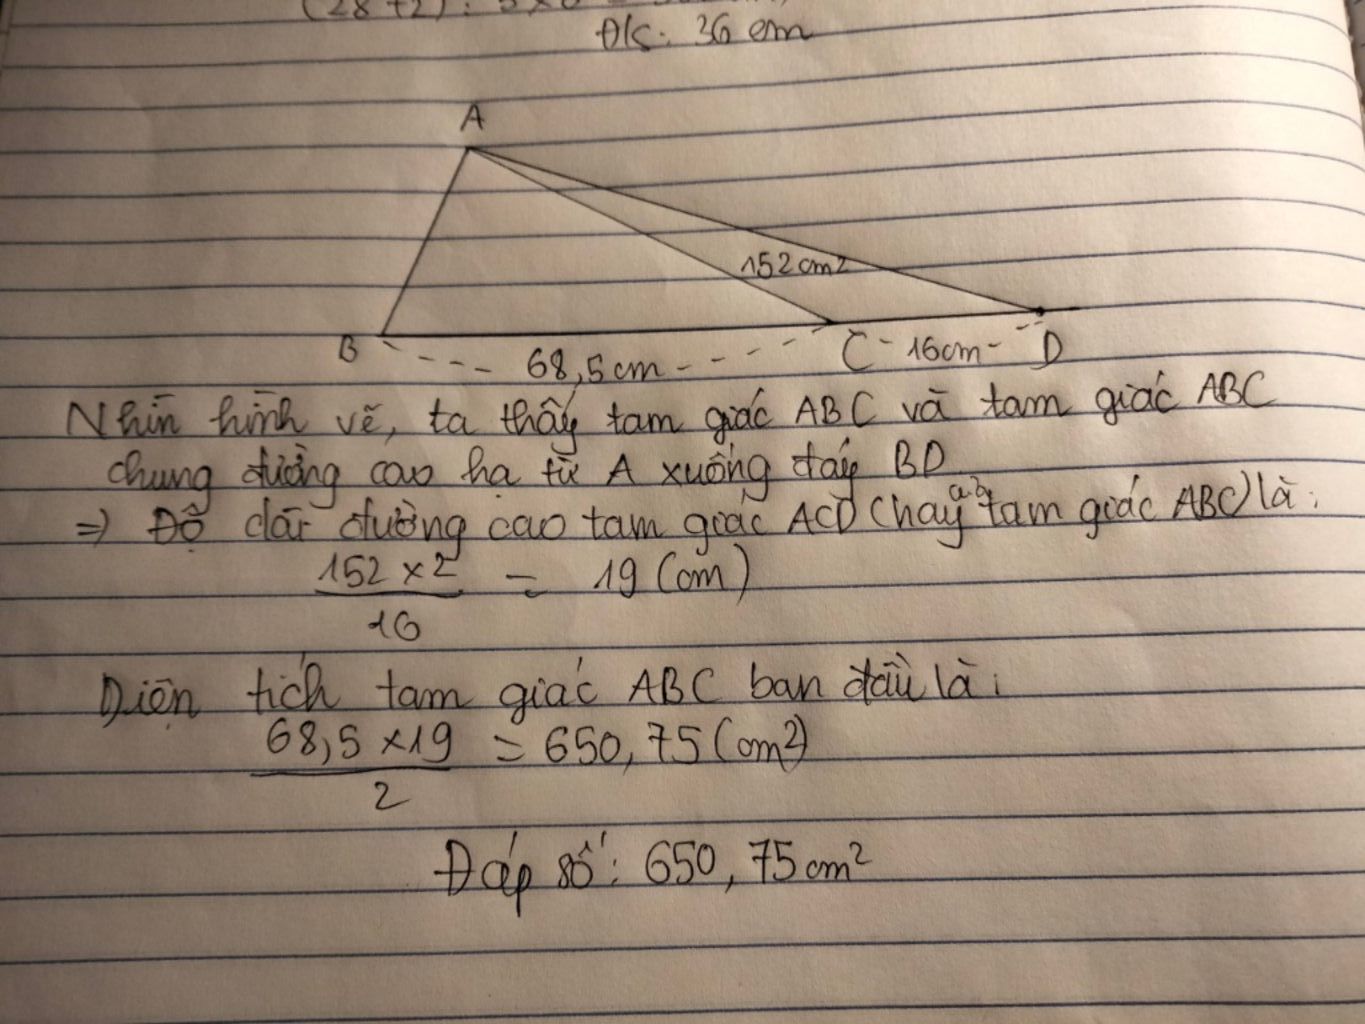 (28+2):
Đ/S: 36 cm
A
152cm²
B
68,5cm
C
16cm
D
Nhìn hình vẽ, ta thấy tam giác ABC và tam giác ABC
chung đường cao hạ từ A xuống đáy BD
⇒ Độ dài đường cao tam giác ACD (hay tam giác ABC) là:
152 × 2 / 16 = 19 (cm)
Diện tích tam giác ABC ban đầu là:
68,5 × 19 / 2 = 650,75 (cm²)
Đáp số: 650,75cm²